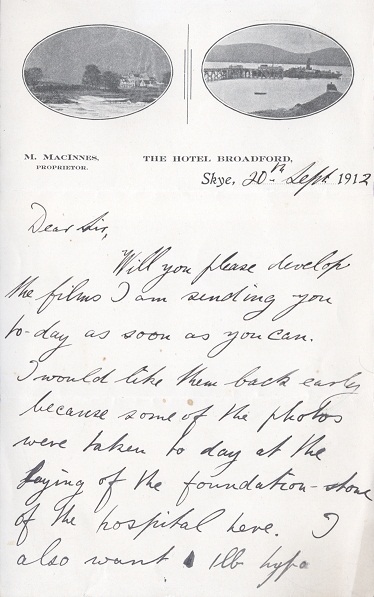 M. MacInnes,
PROPRIETOR.
THE HOTEL BROADFORD,
Skye, 20th Sept. 1912
Dear Sir,
Will you please develop
the films I am sending you
to-day as soon as you can.
I would like them back early
because some of the photos
were taken to day at the
laying of the foundation-stone
of the hospital here. I
also want 1 lb hypo